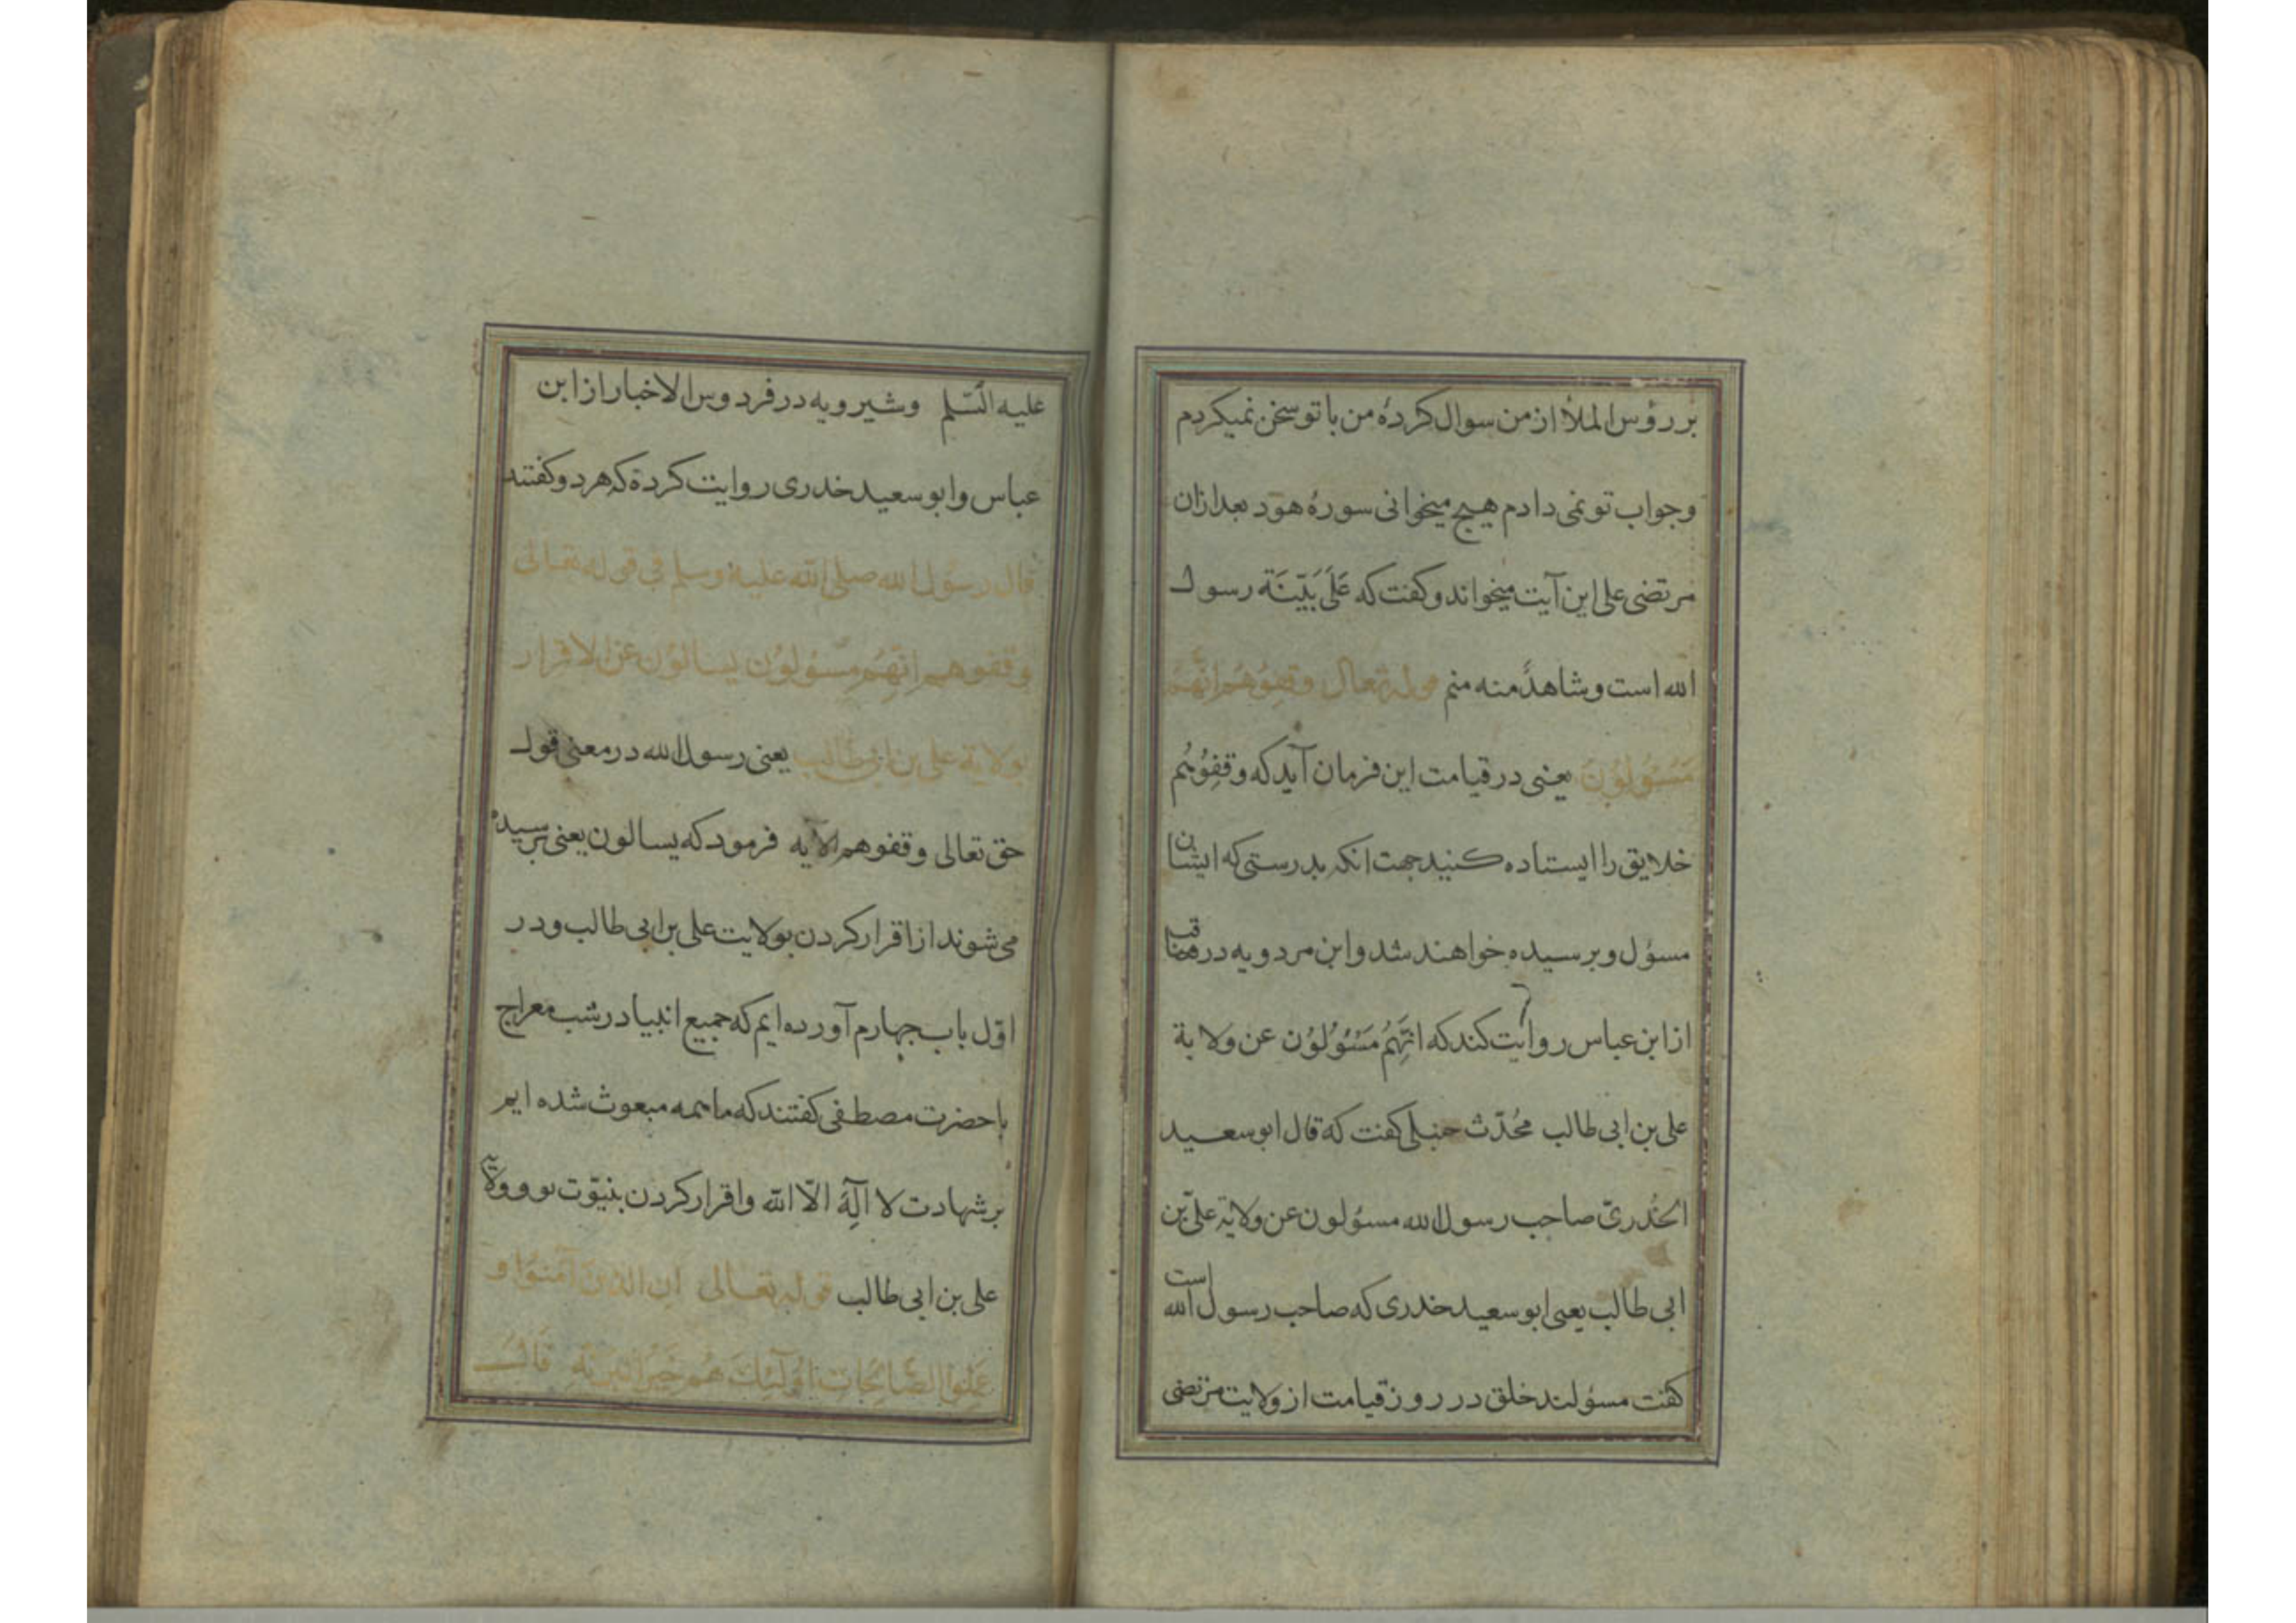 بر رؤس الملأ از من سوال کردهٔ من با تو سخن نمیکردم
و جواب تو نمی دادم هیچ میخوانی سورهٔ هود بعد ازان
مرتضی علی این آیت میخواند و کفت که عَلَی بَیِّنَة رسول
الله است و شاهدٌ منه منم قوله تعالی وقِفُوهُم اِنَّهُم
مَسْئُولُونَ یعنی در قیامت این فرمان آید که وقِفُوهُم
خلایق را ایستاده کنید جهت انکه بدرستی که ایشان
مسؤل و پرسیده خواهند شد و ابن مردویه در مناقب
از ابن عباس روایت کند که انَّهُم مَسْئُولُون عن ولایة
علی بن ابی طالب محُدّث حنبلی کفت که قال ابو سعید
الخُدریّ صاحب رسول الله مسئولون عن ولایة علیّ بن
ابی طالب یعنی ابو سعید خدری که صاحب رسول الله است
کفت مسؤلند خلق در روز قیامت از ولایت مرتضی
علیه السّلم و شیرویه در فردوس الاخبار از ابن
عباس و ابو سعید خدری روایت کرده که هر دو کفتند
قال رسول الله صلی الله علیه وسلم فی قوله تعالی
وقفوهم انّهُم مسئولون یسالون عن الاقرار
بولایة علی بن ابی طالب یعنی رسول الله در معنی قول
حق تعالی وقفوهم الآیه فرمود که یسالون یعنی پرسیده
می شوند از اقرار کردن بولایت علی بن ابی طالب و در
اوّل باب چهارم آورده ایم که جمیع انبیا در شب معراج
با حضرت مصطفی کفتند که ما همه مبعوث شده ایم
بر شهادت لا اِلٓهَ الّا الله و اقرار کردن بنبوّت تو و ولایة
علی بن ابی طالب قوله تعالی ان الذین آمنوا و
عَمِلُوا الصَّالِحَات اولٓئِكَ هُم خَیرُ البَریّه قال